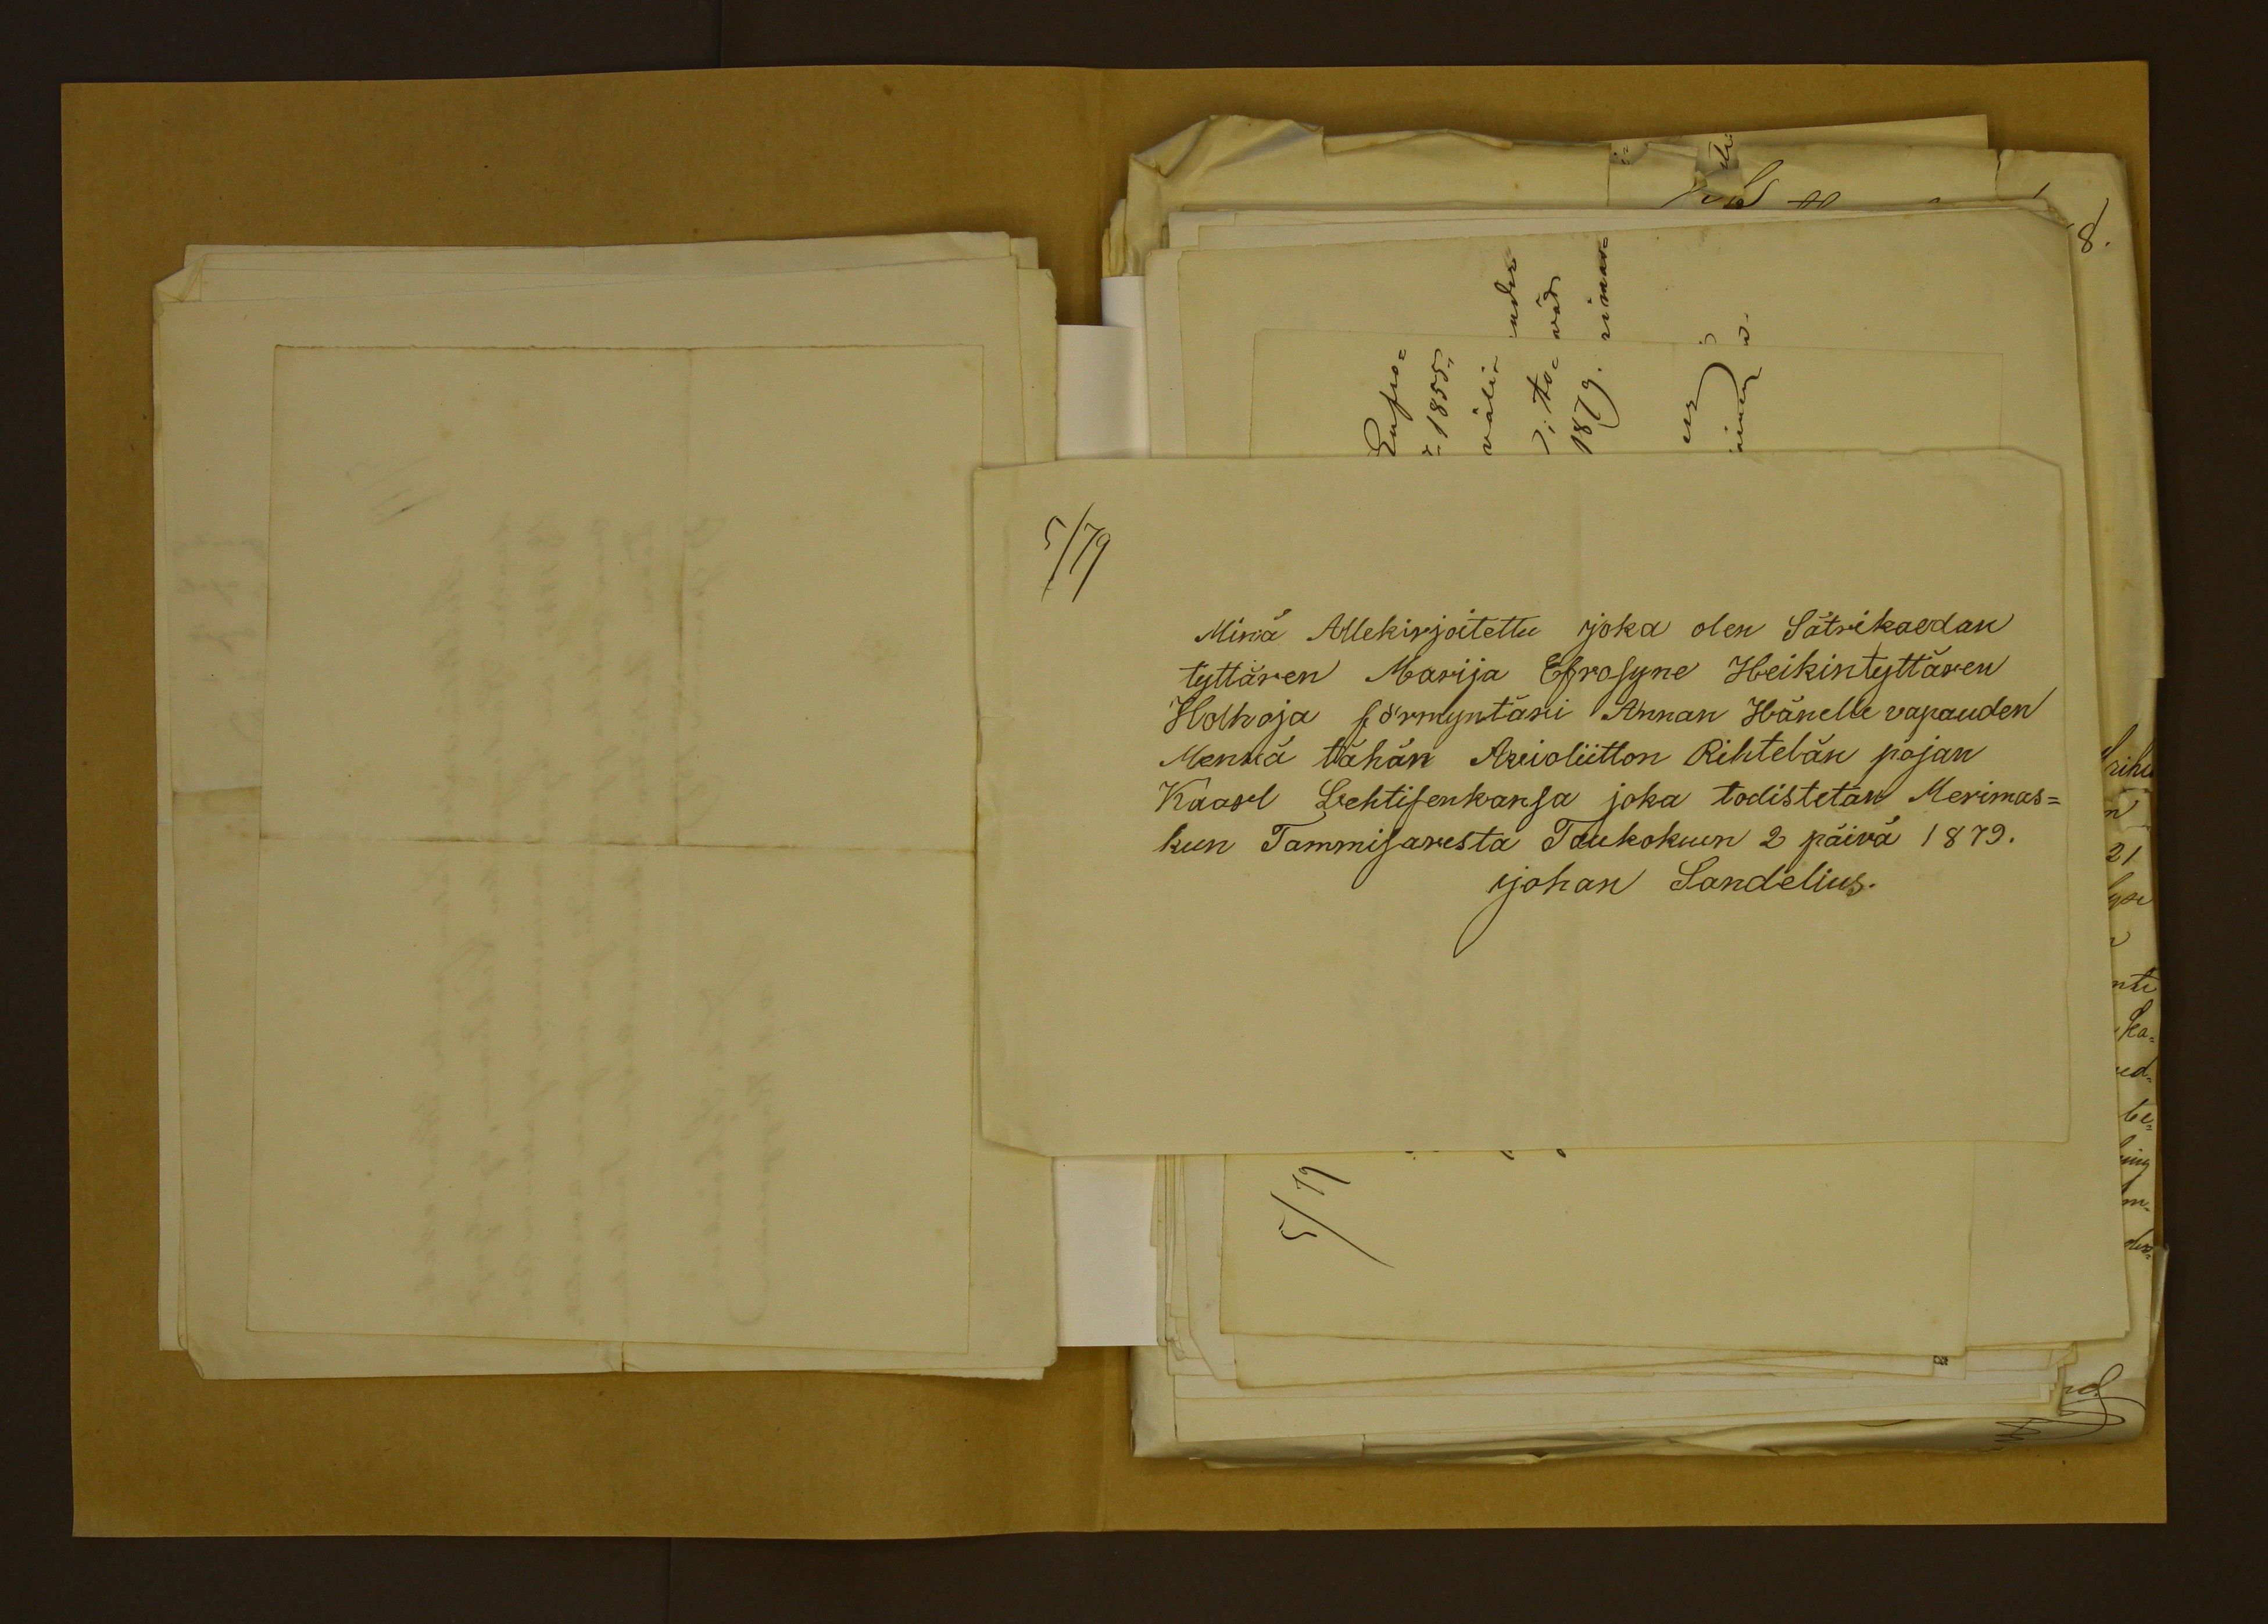 5/79
Minä Allekirjoitettu joka olen Sätrikaedan
tyttären Marija Efrosyne Heikintyttären
Holhoja förmyntäri Annan Hänelle vapauden
Mennä tähän Avioliitton Rihtelän pojan
Kaarl Lehtisenkansa joka todistetan Merimas=
kun Tammisaresta Toukokuun 2 päivä 1879.
johan Sandelius.
Eufro=
1855
väli=
1879.
5/79
8.
21